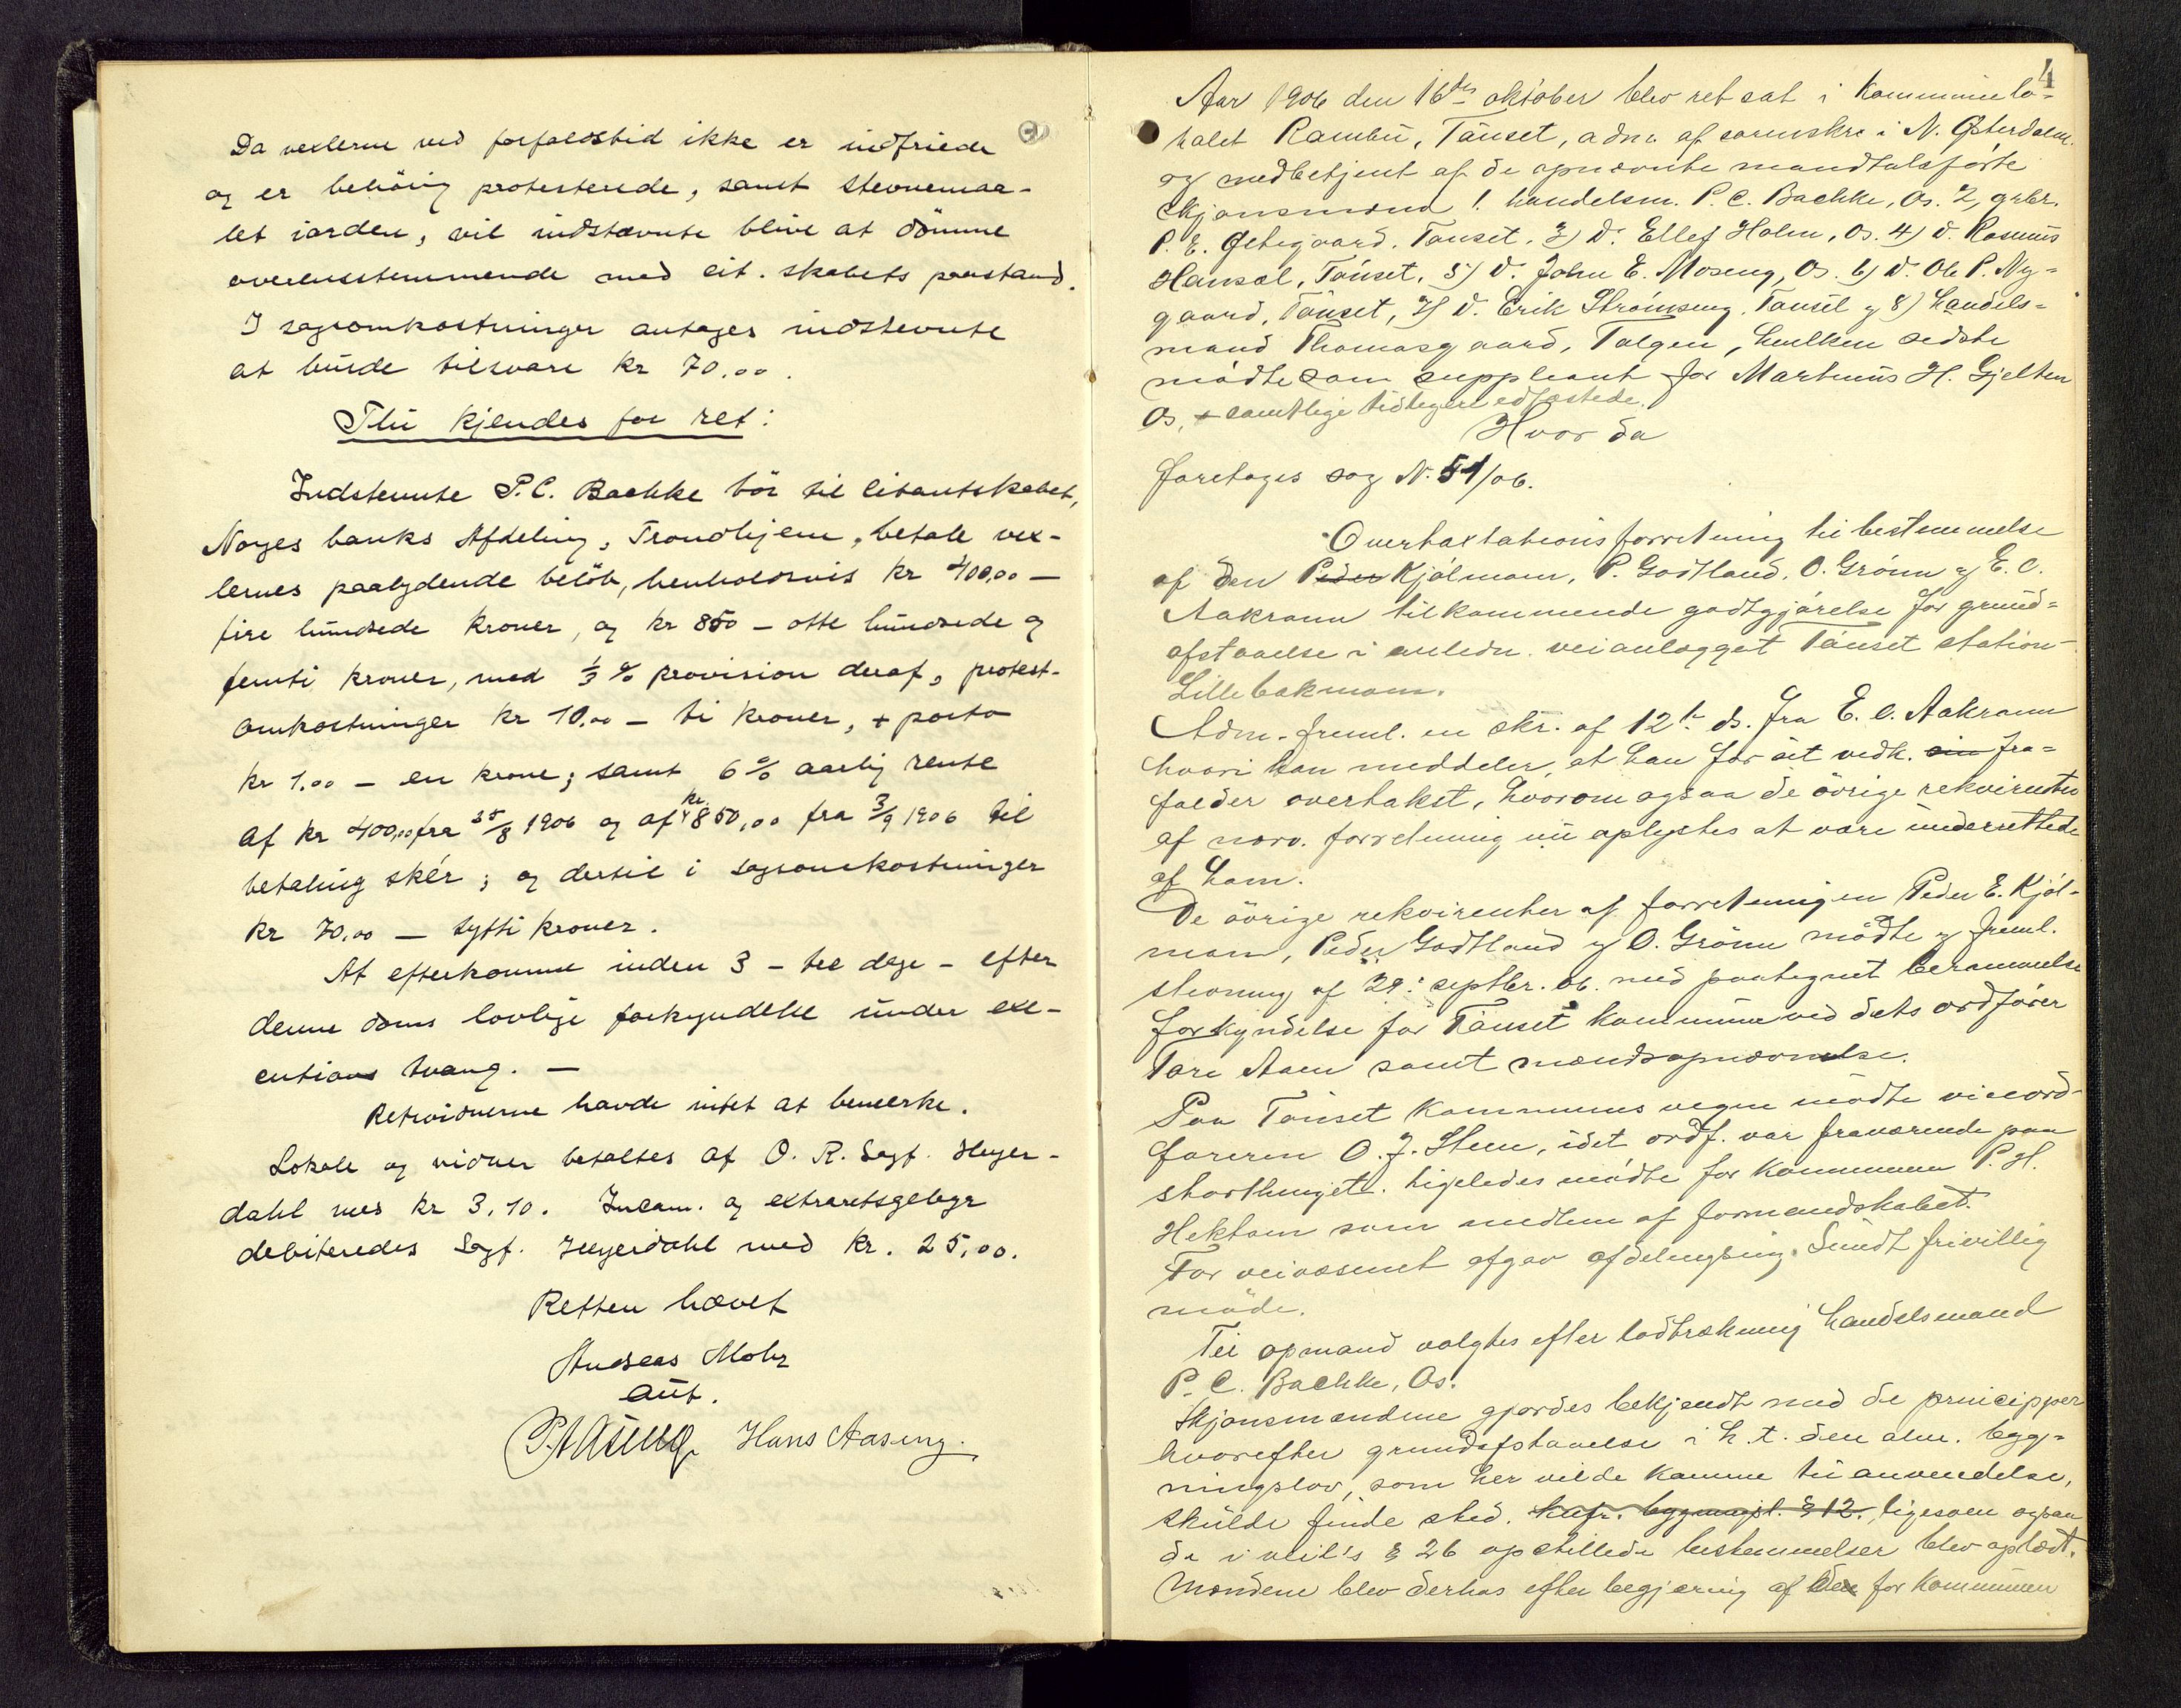 Da vexlerne ved forfaldstid ikke er indfriede
og er behörig protesterede, samt stevnemaa-
let iorden, vil indstævnte blive at dömme
overensstemmende med cit. skabets paastand.
I sagsomkostninger antages indstevnte
at burde tilsvare kr 70.00.
Thi kjendes for ret:
Indstevnte P.C. Bachke bör til citantskabet,
Norges banks Afdeling, Trondhjem, betale vex-
lernes paalydende belöb, henholdsvis kr 400,00 —
fire hundrede kroner, og kr 850 — otte hundrede og
femti kroner, med ⅓ % provision deraf, protest-
omkostninger kr 10.00 — ti kroner, + porto
kr 1.00 — en krone; samt 6 % aarlig rente
af kr 400,00 fra 25/8 1906 og af kr 850,00 fra 3/9 1906 til
betaling skér; og dertil i sagsomkostninger
kr 70.00 — sytti kroner.
At efterkomme inden 3 — tre dage — efter
denne doms lovlige forkyndelse under exe-
cutions tvang. —
Retsvidnerne havde intet at bemerke.
Lokale og vidner betaltes af O. R. Sagf. Heyer-
dahl med kr 3.10. Incam. og extraretsgebyr
debiteredes Sagf. Heyerdahl med kr. 25,00.
Retten hævet
Andreas Mohr
aut.
P. Aaseng Hans Aaseng.
4
Aar 1906 den 16de oktober blev ret sat i Kommunelo-
kalet Rambu, Tönset, adm. af sorenskr. i N. Østerdalen
og medbetjent af de opnævnte mandtalsförte
skjönsmænd 1. handelsm. P. C. Bachke, Os. 2, grbr.
P. E. Østegaard, Tönset, 3) do. Ellef Holm, Os. 4) d. Rasmus
Hansæl, Tönset, 5) d. John E. Moseng, Os. 6) d. Ole P. Ny-
gaard, Tönset, 7) d. Erik Strömseng, Tönset og 8) handels-
mand Thomasgaard, Tolgen, hvilken sidste
mödte som suppleant for Martinus H. Gjelten
Os, samtlige tidligere edfæstede.
Hvor da
foretoges sag N. 51/06.
Overtaxtationsforretning til bestemmelse
af den Peder Kjölmoen, P. Godtland, O. Grönn og E. C.
Aakrann tilkommende godtgjörelse for grund-
afstaaelse i anledn. veianlægget Tönset station-
Lillebakmoen.
Adm. freml. en skr. af 12te ds. fra E. C. Aakrann
hvori han meddeler, at han for sit vedk. sin fra-
falder overtakst, hvorom ogsaa de övrige rekvirenter
af nærv. forretning nu oplystes at være underrettede
af ham.
De övrige rekvirenter af forretningen Peder E. Kjöl-
moen, Peder Godtland og O. Grönn mödte og freml.
stevning af 29. septbr. 06. med paategnet berammelse
forkyndelse for Tönset kommune ved dets ordförer
Tore Aaen samt mændsopnævnelse.
Paa Tönset kommunes vegne mödte viceord-
föreren O. J. Steen, idet ordf. var fraværende paa
storthinget. Ligeledes mödte for kommunen P. H.
Hektoen som medlem af formandskabet.
For veivæsenet afgav afdelingsing. Sundt frivillig
möde.
Til opmand valgtes efter lodtrækning handelsmand
P. C. Bachke, Os.
Skjönsmændene gjordes bekjendt med de principper
hvorefter grundafstaaelse i h. t. den alm. byg-
ningslov, som her vilde komme til anvendelse,
skulde finde sted. kfr. bygningsl. § 12. ligesom ogsaa
de i veil's § 26 opstillede bestemmelser blev oplæst.
Mændene blev derhos efter begjæring af den for kommunen